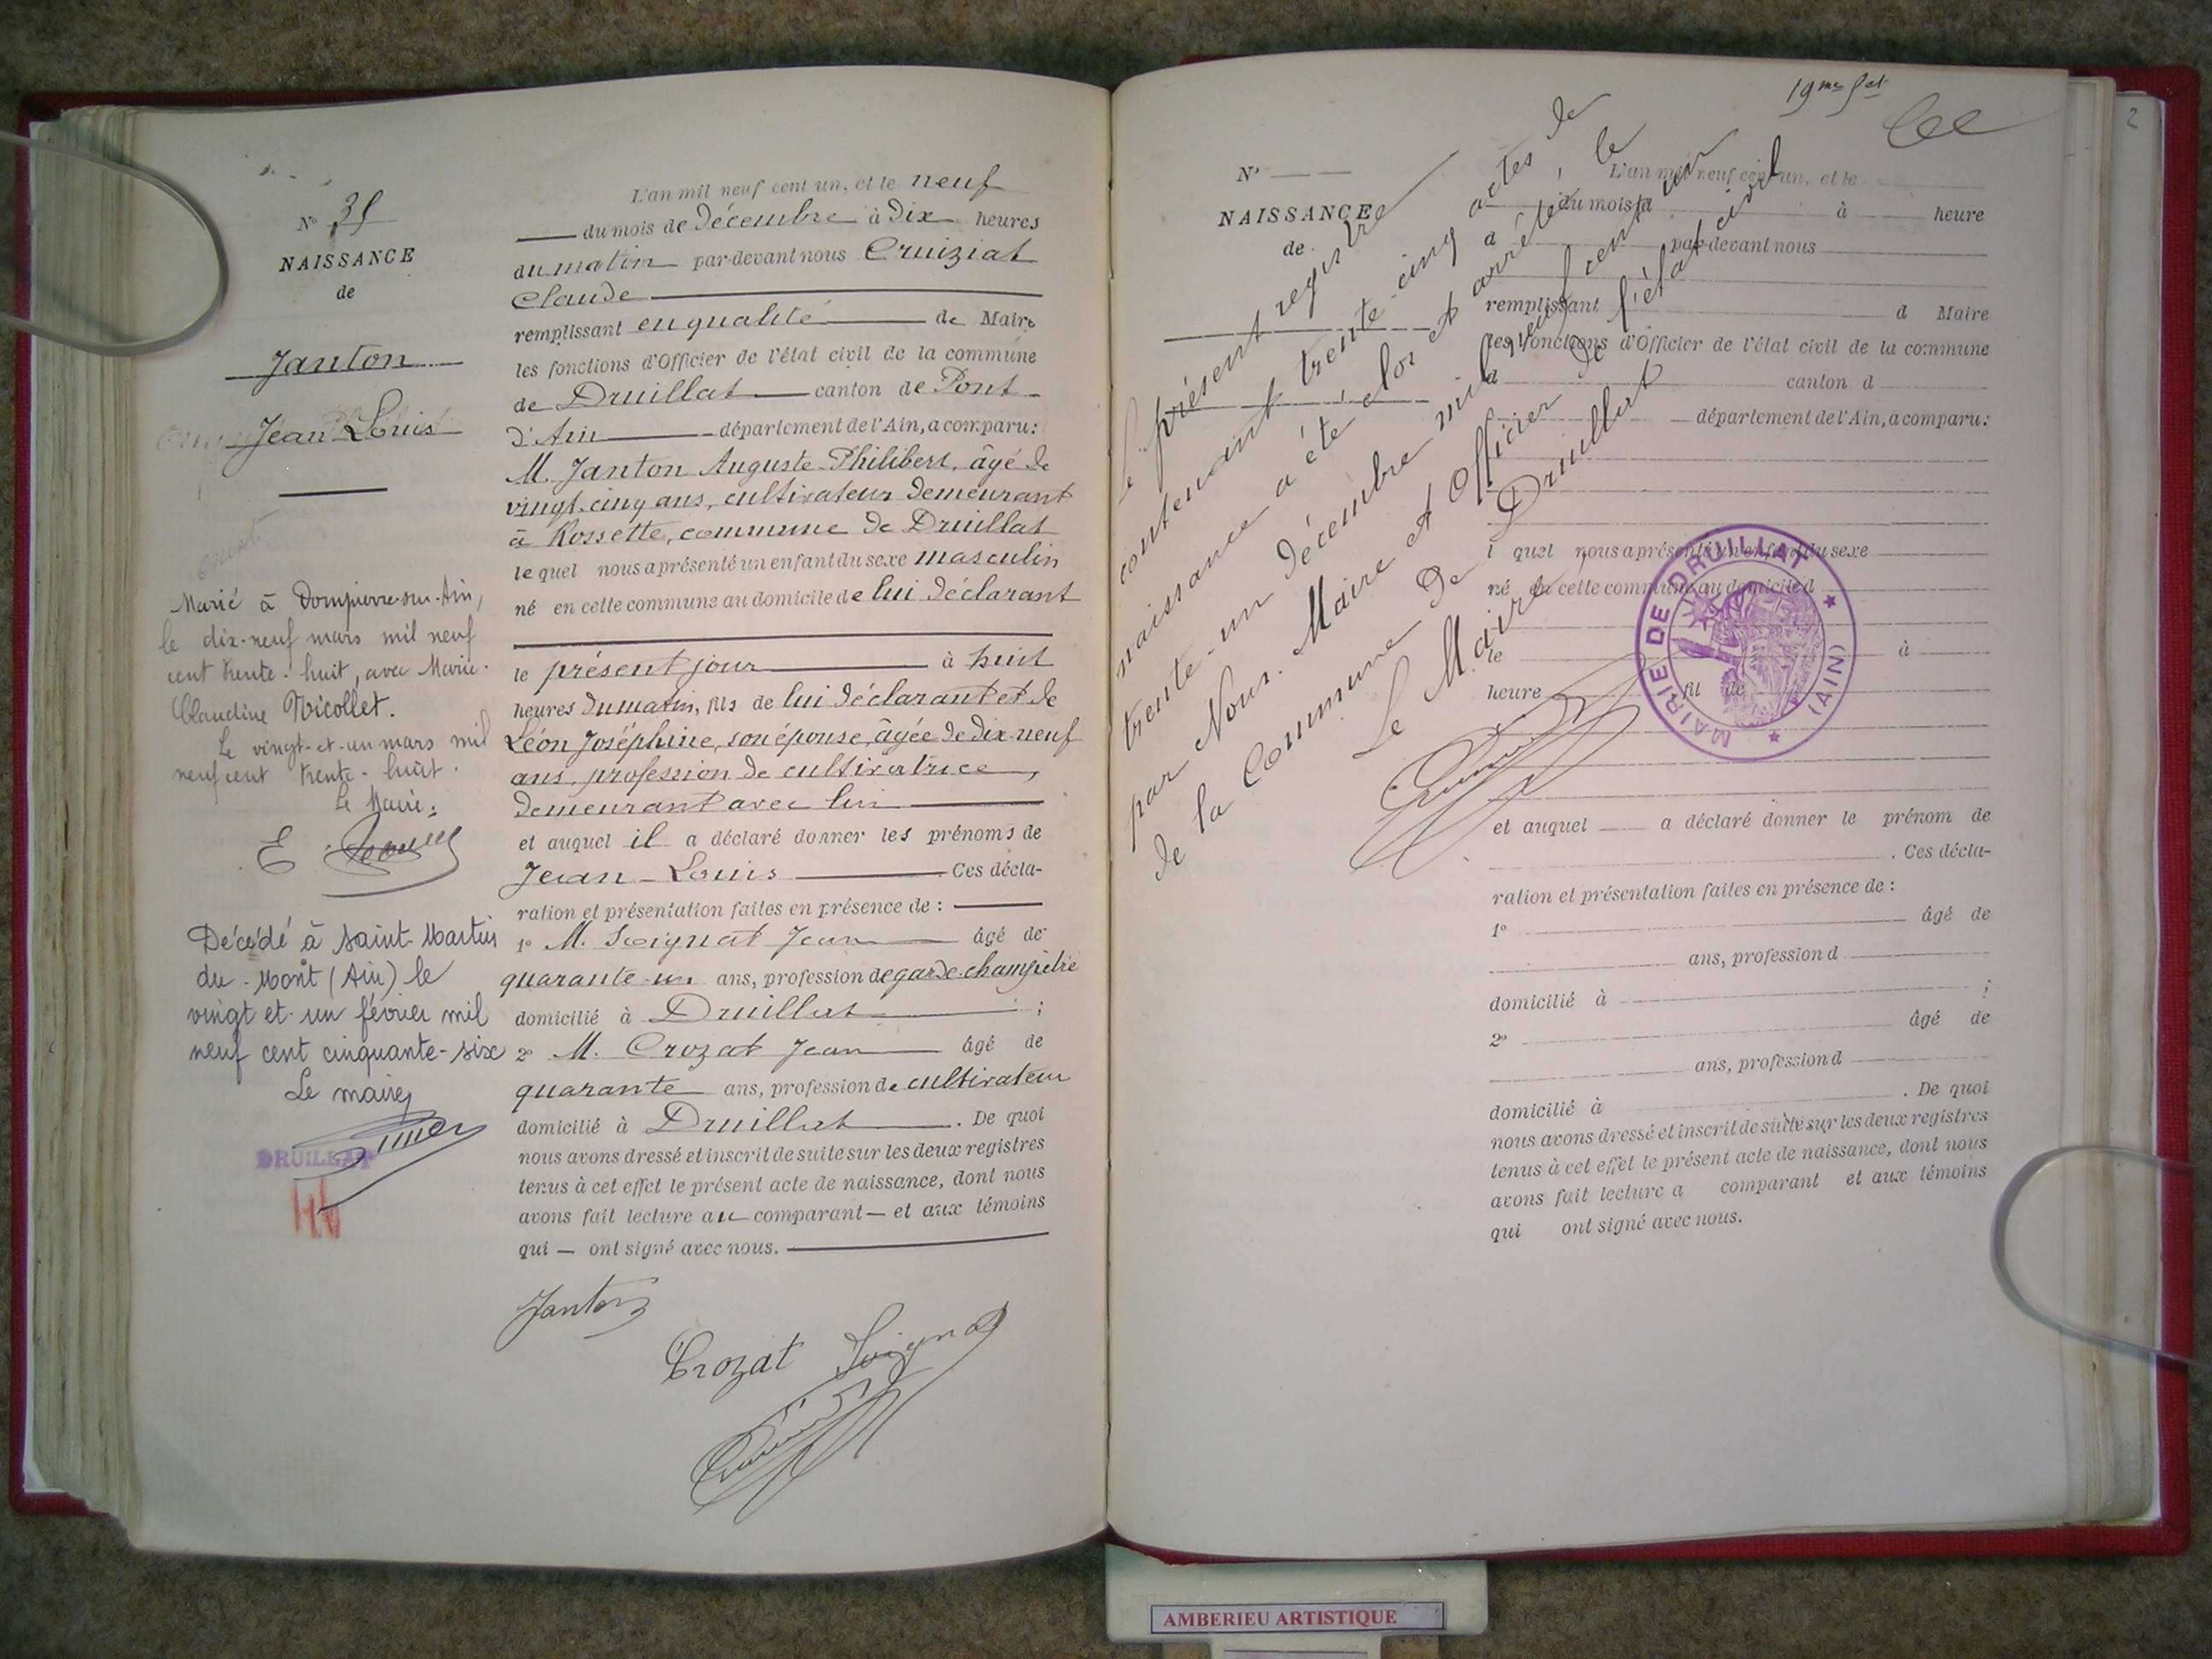 N° 35
NAISSANCE
de
Janton
Jean Louis
Marié à Dompierre-sur-Ain,
le dix-neuf mars mil neuf
cent trente-huit, avec Marie-
Claudine Nicollet.
Le vingt-et-un mars mil
neuf cent trente-huit.
Le Maire:
Décédé à Saint-Martin
du-Mont (Ain) le
vingt et un février mil
neuf cent cinquante-six
Le maire,
DRUILLAT
L'an mil neuf cent un, et le neuf
du mois de décembre à dix heures
du matin par-devant nous Cruiziat
Claude
remplissant en qualité de Maire
les fonctions d'Officier de l'état civil de la commune
de Druillat canton de Pont-
d'Ain département de l'Ain, a comparu:
M. Janton Auguste-Philibert, âgé de
vingt-cinq ans, cultivateur demeurant
à Rossette, commune de Druillat
lequel nous a présenté un enfant du sexe masculin
né en cette commune au domicile de lui déclarant
le présent jour à huit
heures du matin, fils de lui déclarant et de
Léon Joséphine, son épouse, âgée de dix-neuf
ans, profession de cultivatrice,
demeurant avec lui
et auquel il a déclaré donner les prénoms de
Jean-Louis. Ces décla-
ration et présentation faites en présence de:
1° M. Soignat Jean âgé de
quarante-un ans, profession de garde-champêtre
domicilié à Druillat;
2° M. Crozat Jean âgé de
quarante ans, profession de cultivateur
domicilié à Druillat. De quoi
nous avons dressé et inscrit de suite sur les deux registres
tenus à cet effet le présent acte de naissance, dont nous
avons fait lecture au comparant — et aux témoins
qui — ont signé avec nous.
Janton
Crozat Soignat
19me fet
N° — —
NAISSANCE
de
Le présent registre
contenant trente-cinq actes de
naissance a été clos et arrêté, le
trente-un décembre mil neuf cent un
par Nous, Maire et Officier de l'état civil
de la Commune de Druillat
Le Maire,
L'an mil neuf cent un, et le
du mois d à heure
d par-devant nous
remplissant d Maire
les fonctions d'Officier de l'état civil de la commune
d canton d
département de l'Ain, a comparu:
l quel nous a présenté un enfant du sexe
né en cette commune au domicile d
le à
heure , fil de
MAIRIE DE DRUILLAT
(AIN)
et auquel a déclaré donner le prénom de
. Ces décla-
ration et présentation faites en présence de:
1° âgé de
ans, profession d
domicilié à ;
2° âgé de
ans, profession d
domicilié à . De quoi
nous avons dressé et inscrit de suite sur les deux registres
tenus à cet effet le présent acte de naissance, dont nous
avons fait lecture a comparant et aux témoins
qui ont signé avec nous.
2
AMBERIEU ARTISTIQUE